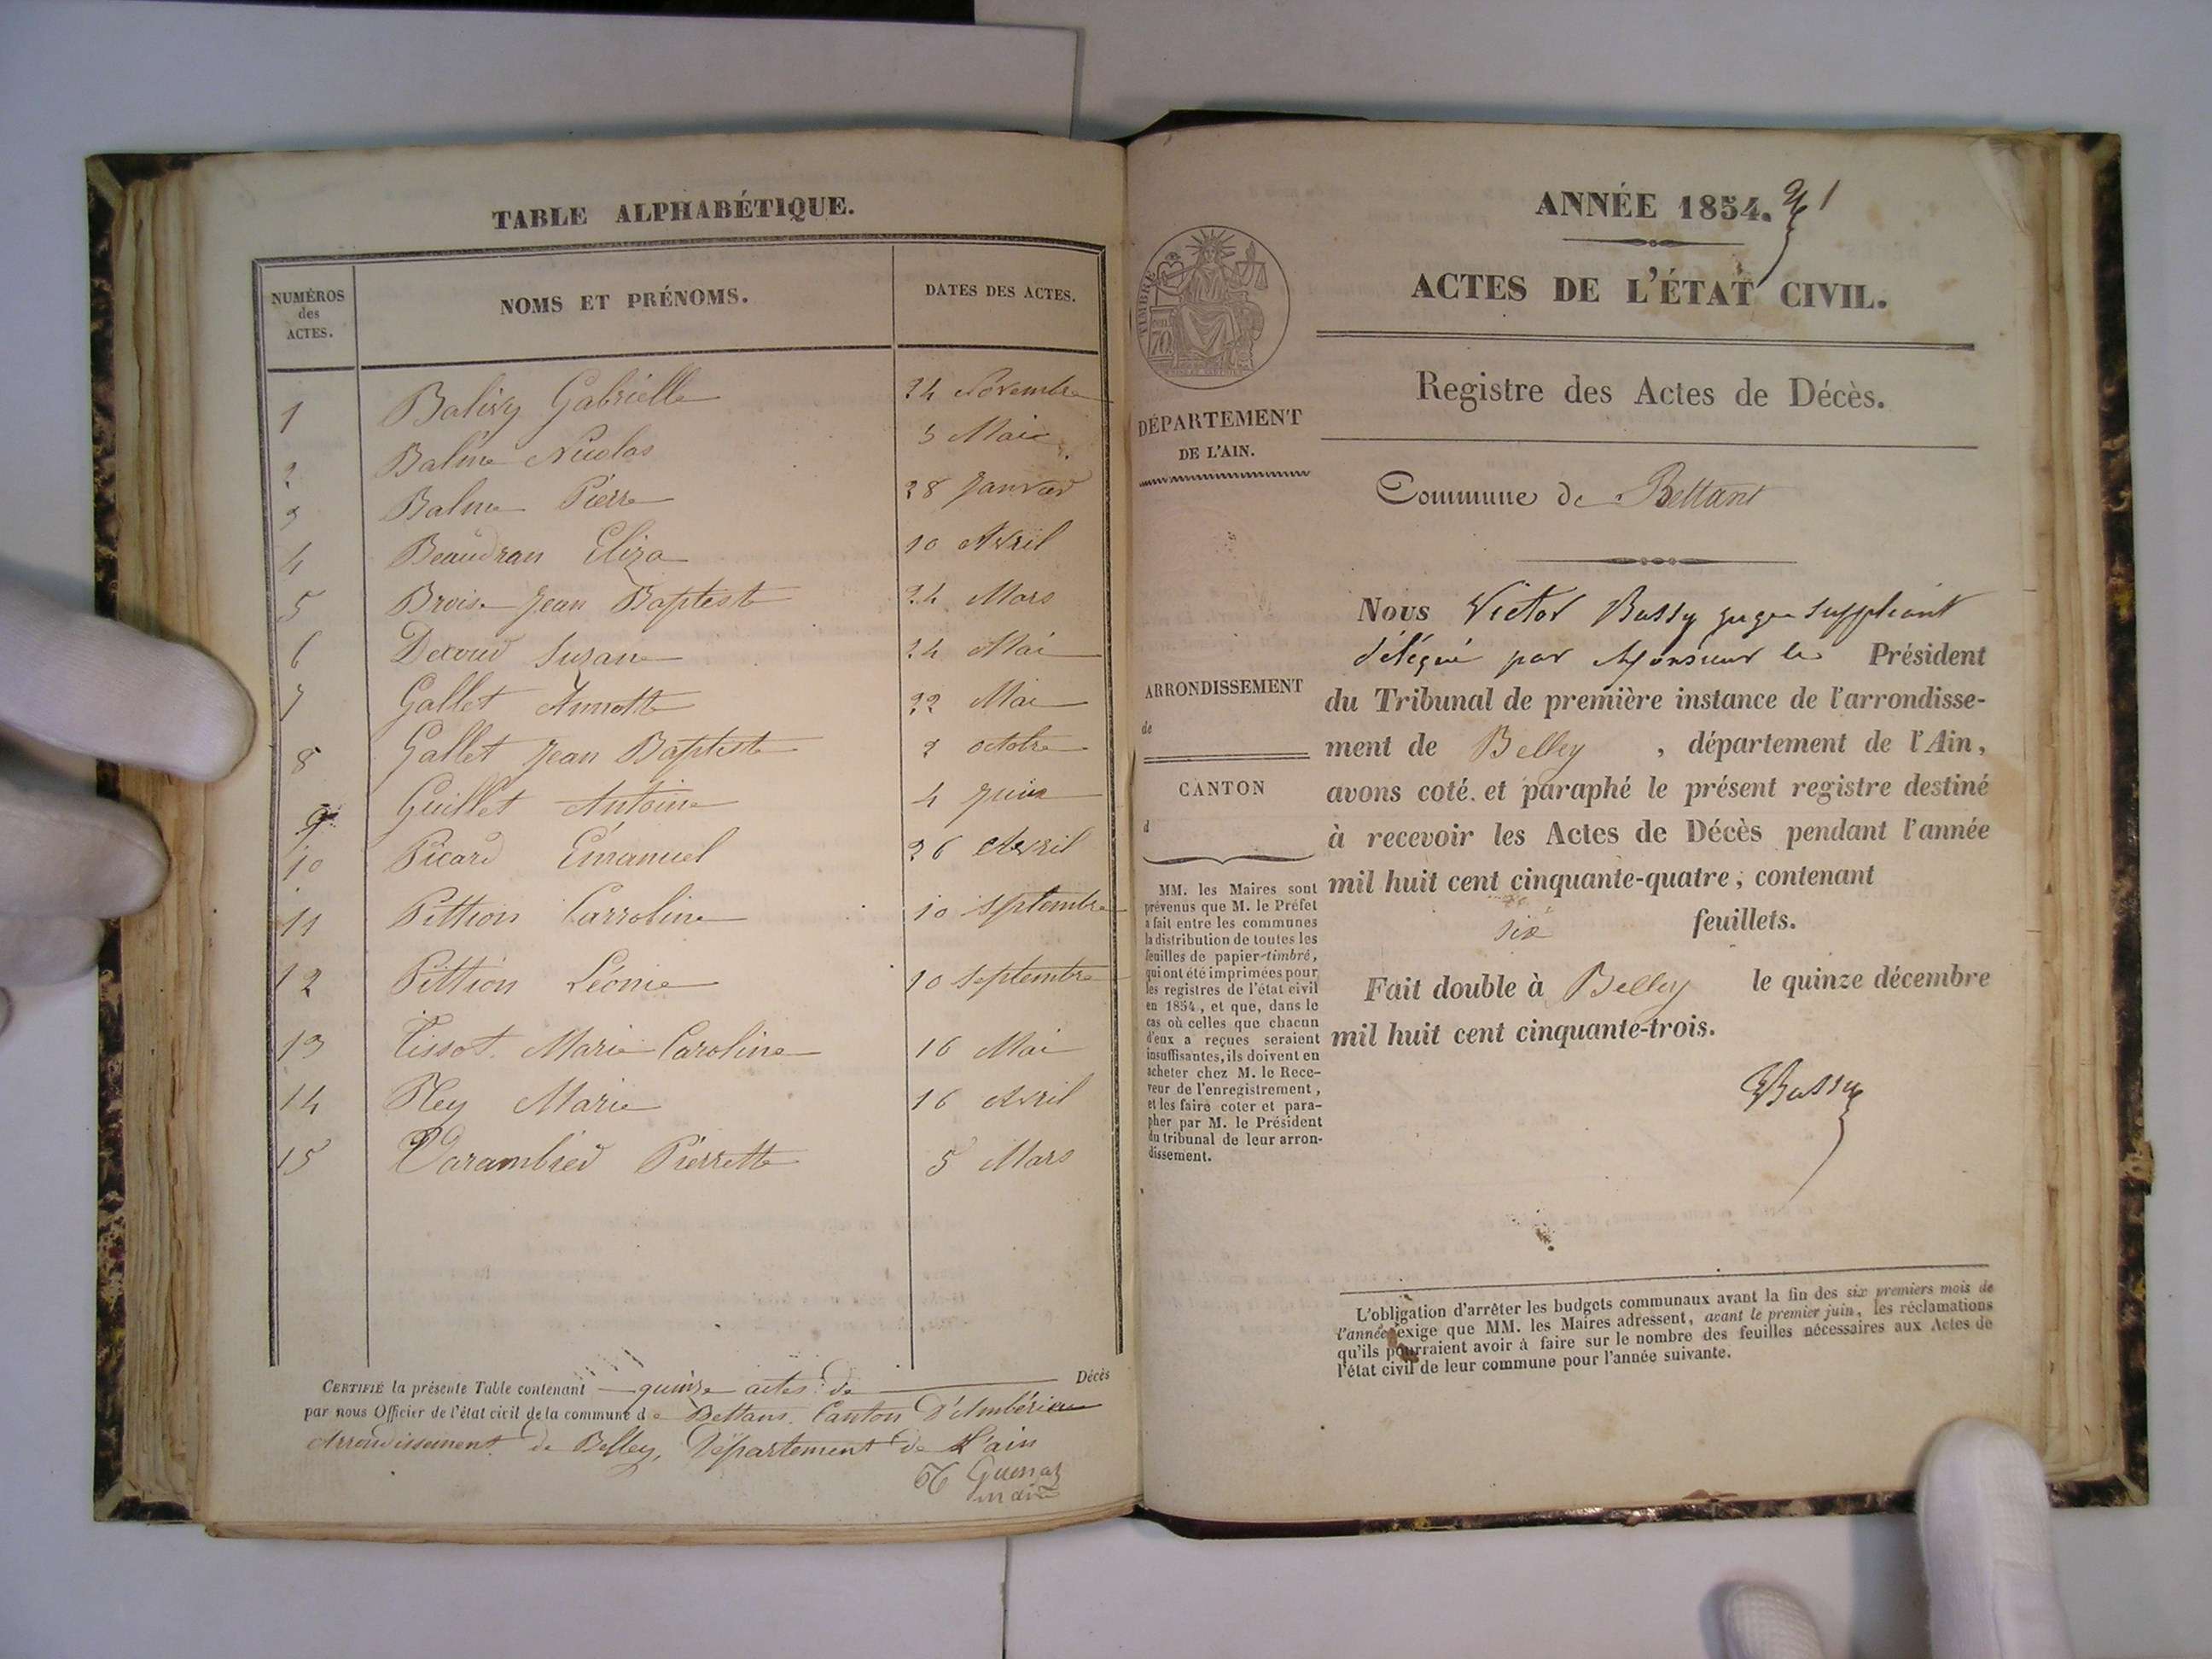 TABLE ALPHABÉTIQUE.
NUMÉROS
des
ACTES.
NOMS ET PRÉNOMS.
DATES DES ACTES.
1 Balivy Gabrielle 24 Novembre
2 Balme Nicolas 3 Mai
3 Balme Pierre 28 Janvier
4 Beaudran Eliza 10 Avril
5 Brois Jean Baptiste 24 Mars
6 Suzane 24 Mai
7 Gallet Annette 22 Mai
8 Gallet Jean Baptiste 2 octobre
9 Guillet Antoine 4 Juin
10 Picard Émanuel 26 Avril
11 Pittion Carroline 10 septembre
12 Pittion Léonie 10 septembre
13 Tissot Marie Caroline 16 Mai
14 Rey Marie 16 Avril
15 Varambied Pierrette 5 Mars
CERTIFIÉ la présente Table contenant quinze actes de Décès
par nous Officier de l'état civil de la commune de Bettans Canton d'Ambérieu
Arrondissement de Belley, Département de L'ain
Maire
ANNÉE 1854. 1
ACTES DE L'ÉTAT CIVIL.
Registre des Actes de Décès.
TIMBRE
70
DÉPARTEMENT
DE L'AIN.
ARRONDISSEMENT
de
CANTON
d
MM. les Maires sont
prévenus que M. le Préfet
a fait entre les communes
la distribution de toutes les
feuilles de papier-timbré,
qui ont été imprimées pour
les registres de l'état civil
en 1854, et que, dans le
cas où celles que chacun
d'eux a reçues seraient
insuffisantes, ils doivent en
acheter chez M. le Rece-
veur de l'enregistrement,
et les faire coter et para-
pher par M. le Président
du tribunal de leur arron-
dissement.
Commune de Bettant
Nous Victor Bussy juge suppléant
délégué par Monsieur le Président
du Tribunal de première instance de l'arrondisse-
ment de Belley , département de l'Ain,
avons coté et paraphé le présent registre destiné
à recevoir les Actes de Décès pendant l'année
mil huit cent cinquante-quatre, contenant
six feuillets.
Fait double à Belley le quinze décembre
mil huit cent cinquante-trois.
VBussy
L'obligation d'arrêter les budgets communaux avant la fin des six premiers mois de
l'année exige que MM. les Maires adressent, avant le premier juin, les réclamations
qu'ils pourraient avoir à faire sur le nombre des feuilles nécessaires aux Actes de
l'état civil de leur commune pour l'année suivante.